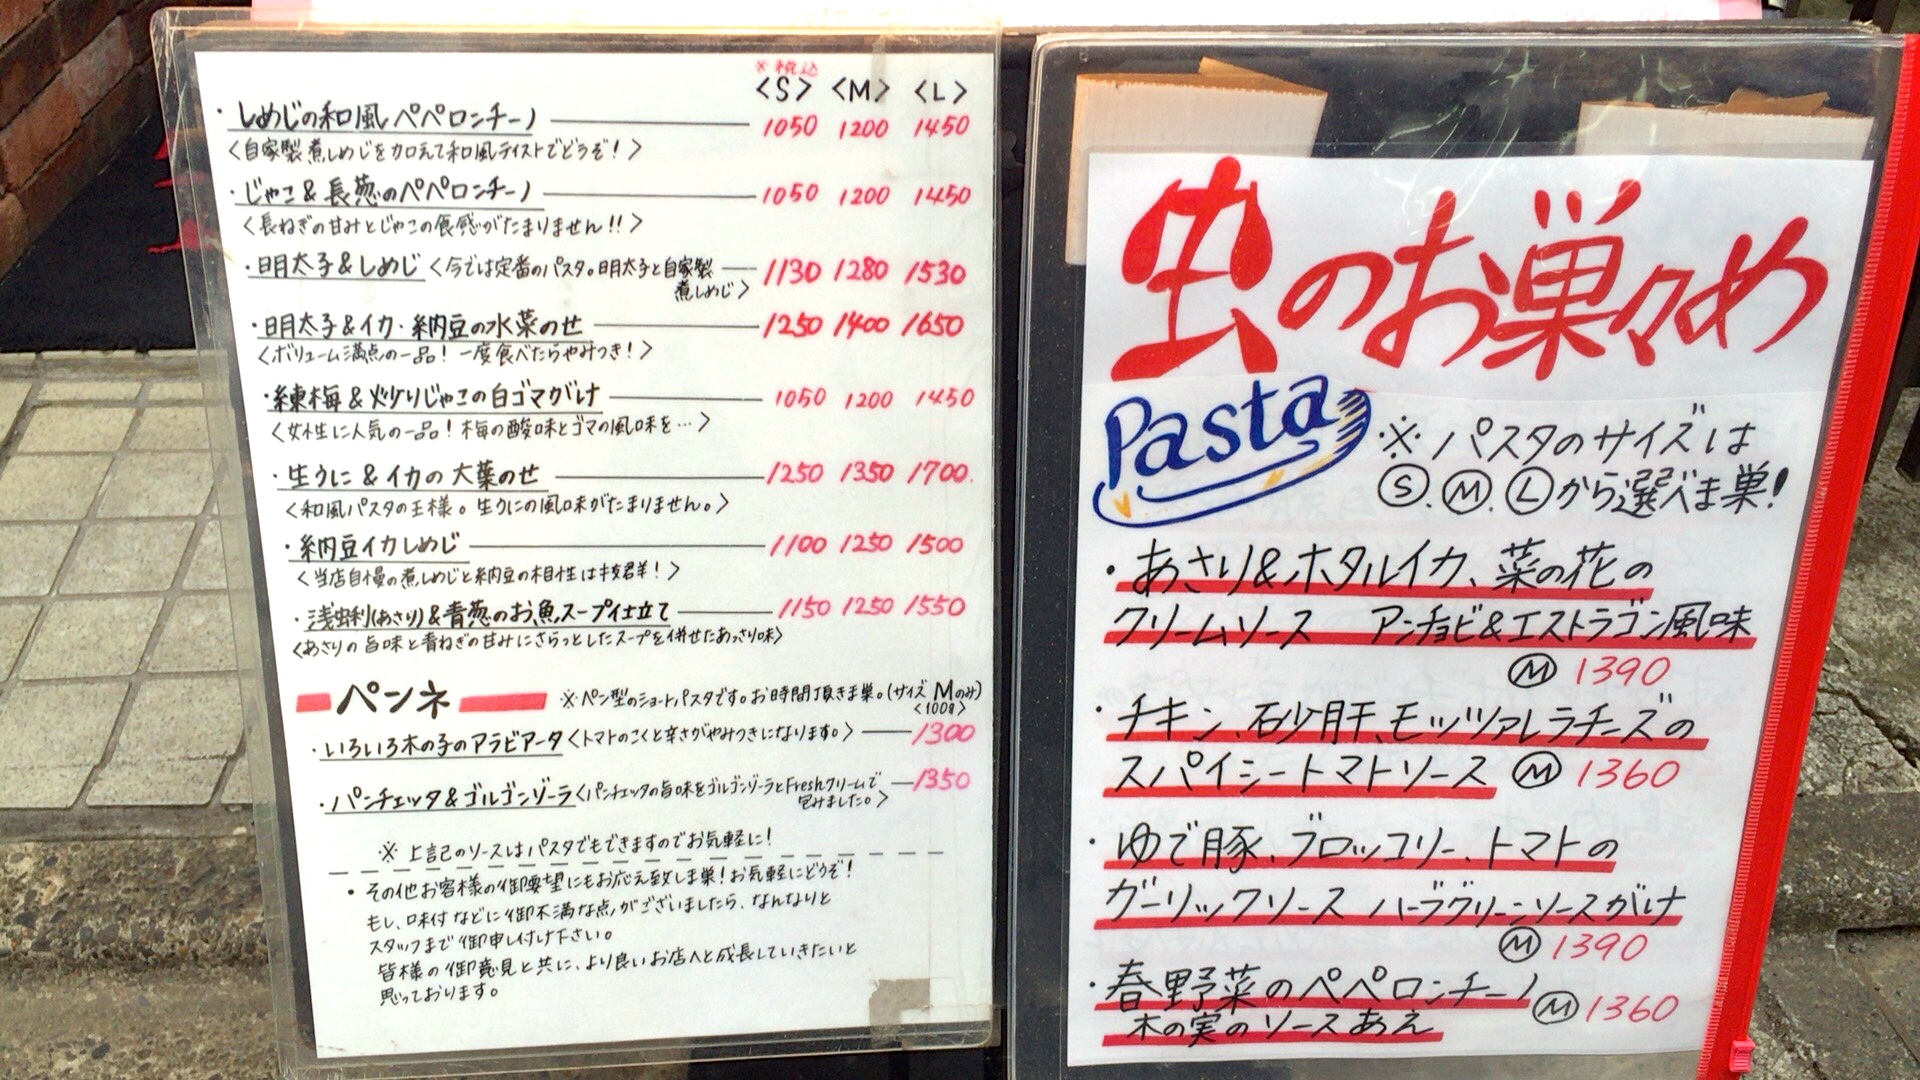 ※税込
<S> <M> <L>
・しめじの和風ペペロンチーノ 1050 1200 1450
<自家製煮しめじを加えて和風テイストでどうぞ！>
・じゃこ&長葱のペペロンチーノ 1050 1200 1450
<長ねぎの甘みとじゃこの食感がたまりません!!>
・明太子&しめじ <今では定番のパスタ。明太子と自家製 1130 1280 1530
煮しめじ>
・明太子&イカ・納豆の水菜のせ 1250 1400 1650
<ボリューム満点の一品！一度食べたらやみつき！>
・練梅&炒りじゃこの白ゴマがけ 1050 1200 1450
<女性に人気の一品！梅の酸味とゴマの風味を…>
・生うに&イカの大葉のせ 1250 1350 1700.
<和風パスタの王様。生うにの風味がたまりません。>
・納豆イカしめじ 1100 1250 1500
<当店自慢の煮しめじと納豆の相性は抜群！>
・浅蜊(あさり)&青葱のお魚スープ仕立て 1150 1250 1550
<あさりの旨味と青ねぎの甘みにさらっとしたスープを併せたあっさり味>
ペンネ ※ペン型のショートパスタです。お時間頂きま巣。(サイズMのみ)
<100g>
・いろいろ木の子のアラビアータ <トマトのこくと辛さがやみつきになります。> 1300
・パンチェッタ&ゴルゴンゾーラ <パンチェッタの旨味をゴルゴンゾーラとFreshクリームで 1350
包みました。>
※上記のソースはパスタでもできますのでお気軽に！
・その他お客様の御要望にもお応え致しま巣！お気軽にどうぞ！
もし、味付などに御不満な点がございましたら、なんなりと
スタッフまで御申し付け下さい。
皆様の御意見と共に、より良いお店へと成長していきたいと
思っております。
虫のお巣々め
Pasta
※パスタのサイズは
Ⓢ.Ⓜ.Ⓛから選べま巣！
・あさり&ホタルイカ、菜の花の
クリームソース アンチョビ&エストラゴン風味
Ⓜ 1390
・チキン、砂肝、モッツァレラチーズの
スパイシートマトソース Ⓜ 1360
・ゆで豚、ブロッコリー、トマトの
ガーリックソース ハーブグリーンソースがけ
Ⓜ 1390
・春野菜のペペロンチーノ Ⓜ 1360
木の実のソースあえ